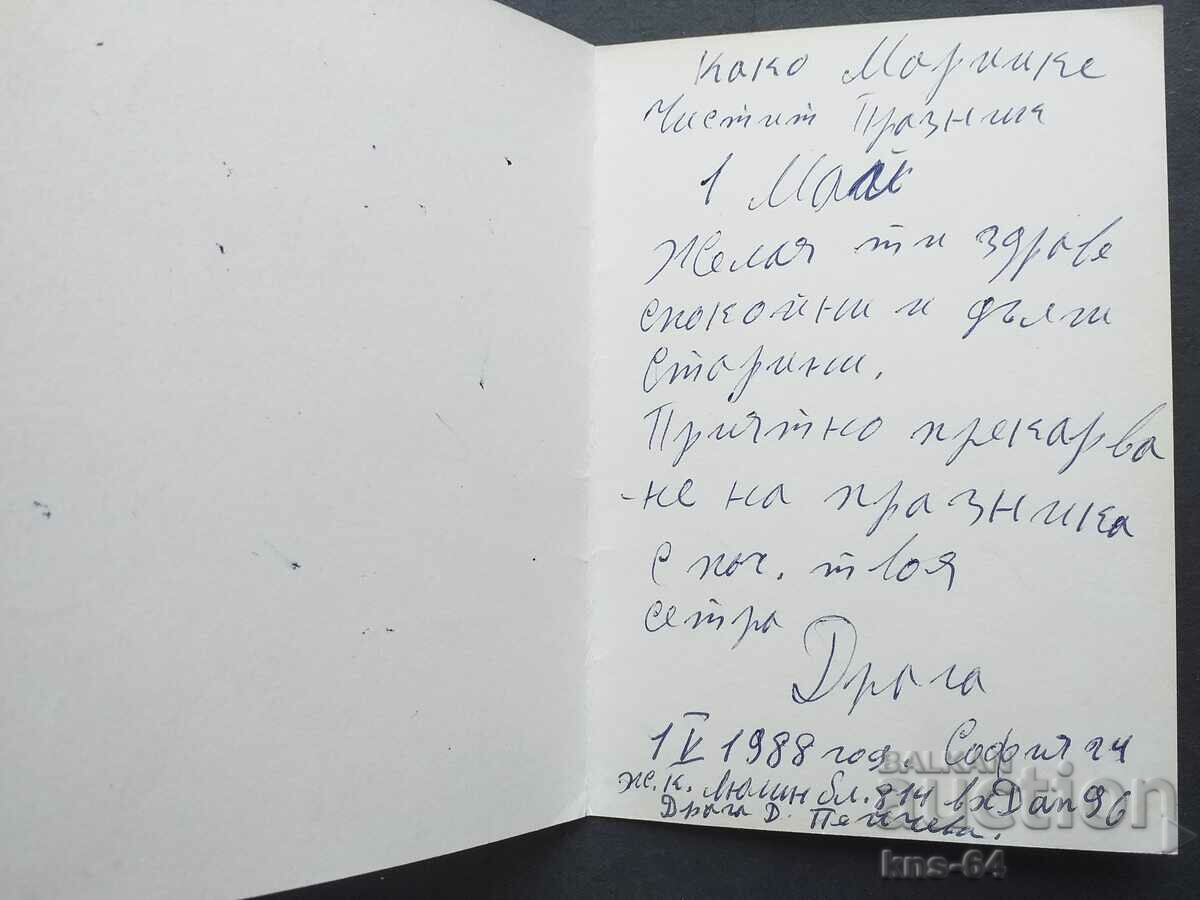 Како Марийке
Чистит Празник
1 Май
Желая ти здраве
спокойни и дълги
старини.
Приятно прекарва
-не на празника
С поч. твоя
сетра
Драга
1 V 1988 год. София 24
ж.к. Люлин бл. 814 вх Д ап 96
Драга Д.
BALKAN
auction
kns-64